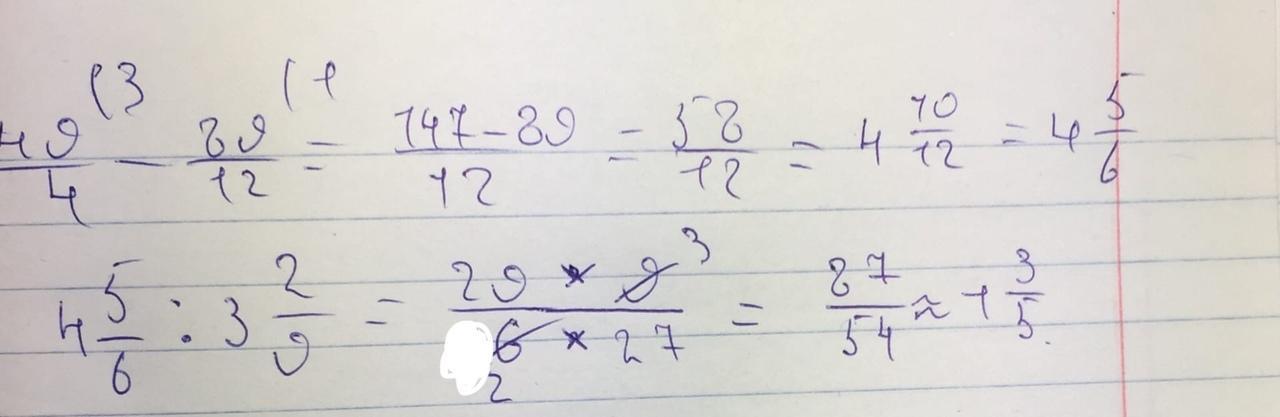 49/4 (3 - 89/12 (1 = 147-89/12 = 58/12 = 4 10/12 = 4 5/6
4 5/6 : 3 2/9 = 29 * 9 3/6 2 * 27 = 87/54 ≈ 1 3/5.